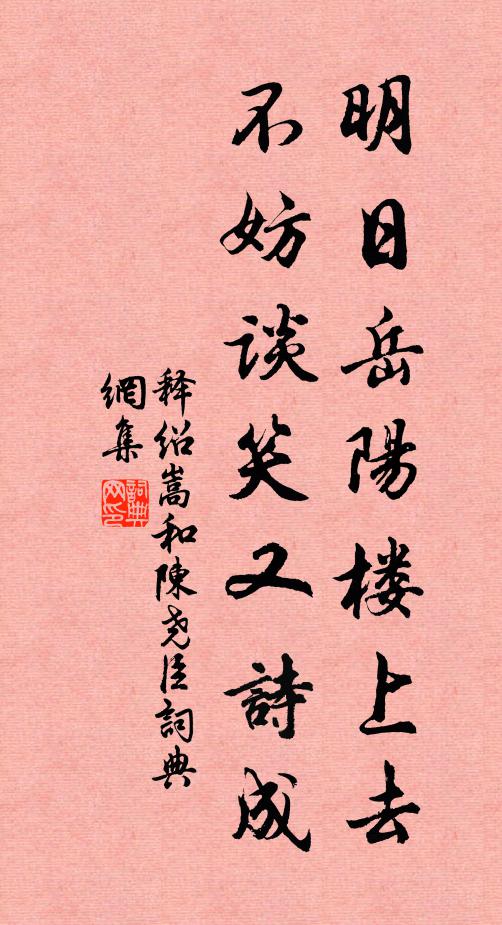 明日岳陽楼上去
不妨谈笑又詩成
释绍嵩和陳尧臣詞典
網集
詞典
网印